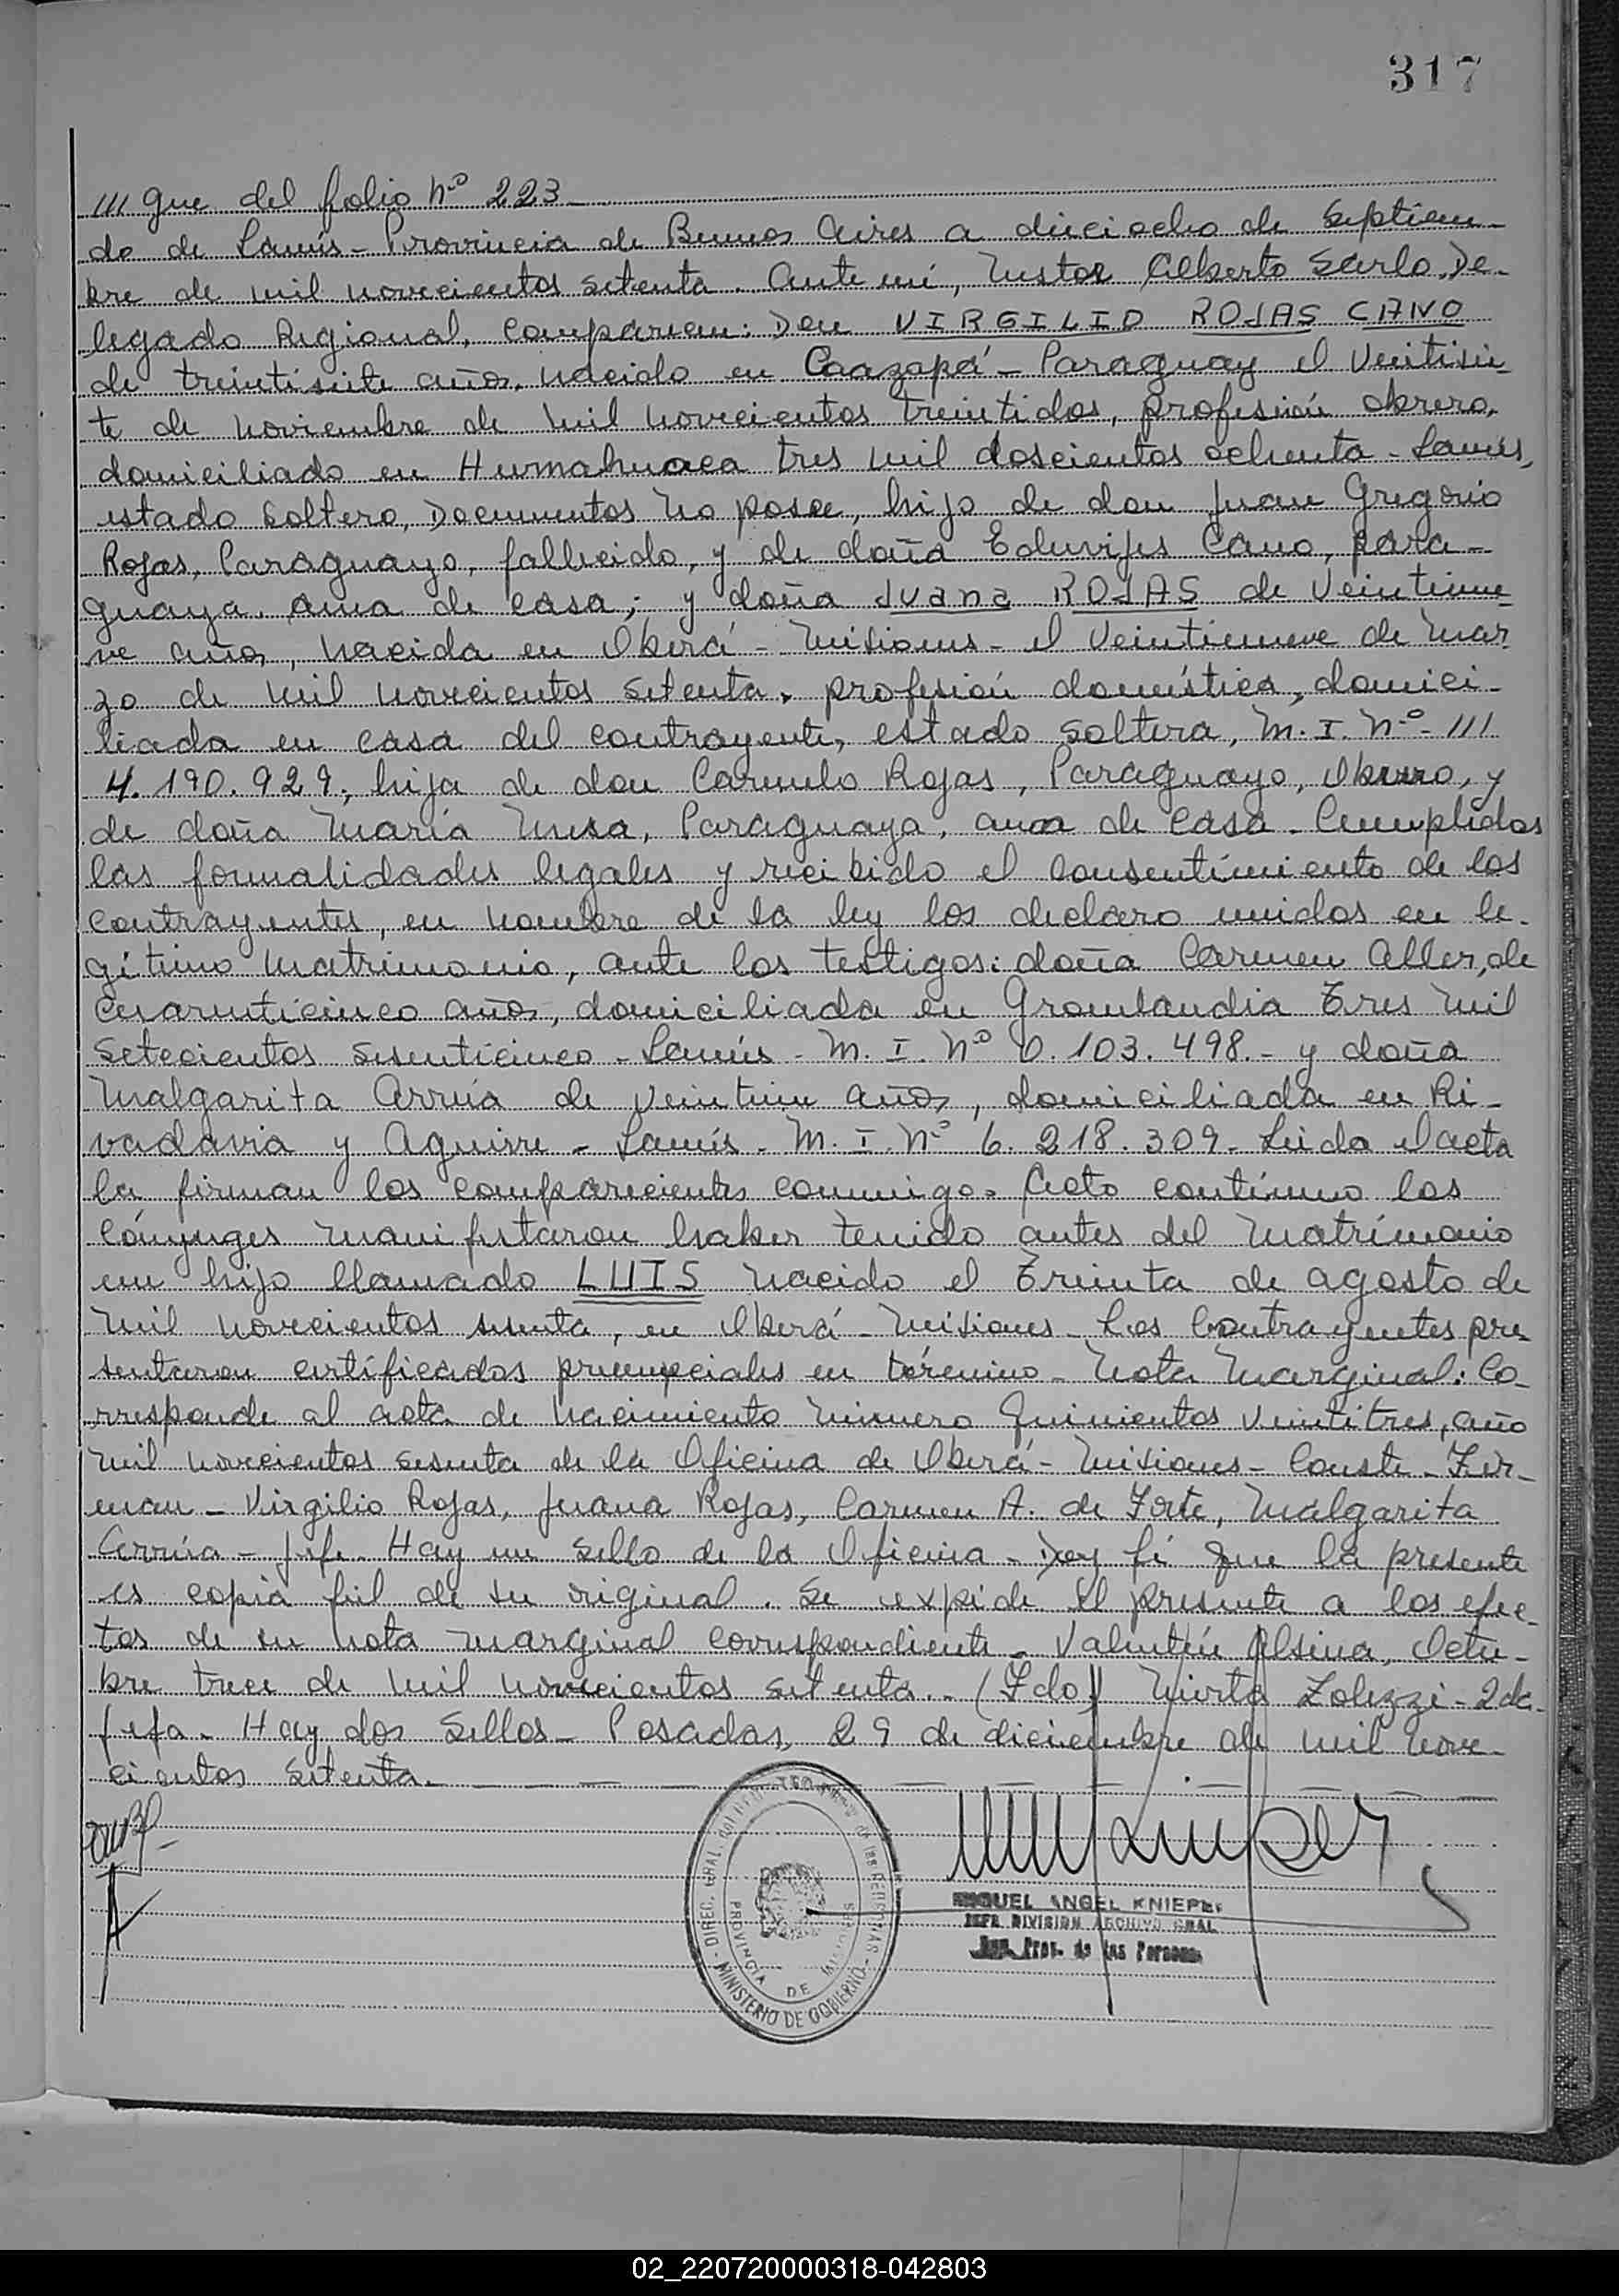 317
/// gue del folio Nº 223
do de Lanús - Provincia de Buenos Aires a dieciocho de Septiem-
bre de mil novecientos setenta. Ante mí, Nestor Alberto Sarlo, De-
legado Regional, comparecen: Don VIRGILIO ROJAS CANO
de treintisiete años, nacido en Caazapá - Paraguay el Veintisie-
te de noviembre de mil novecientos treintidos, profesión obrero,
domiciliado en Humahuaca tres mil doscientos ochenta - Lanús,
estado soltero, Documentos no posee, hijo de don Juan Gregorio
Rojas, Paraguayo, fallecido, y de doña Eduvijes Cano, para-
guaya, ama de casa; y doña Juana ROJAS de Veintinue-
ve años, nacida en Oberá - Misiones - el Veintinueve de mar-
zo de mil novecientos setenta, profesión doméstica, domici-
liada en casa del contrayente, estado soltera, M. I. Nº ///
4.190.929, hija de don Carmelo Rojas, Paraguayo, obrero, y
de doña María Musa, Paraguaya, ama de casa. Cumplidas
las formalidades legales y recibido el consentimiento de los
contrayentes, en nombre de la ley los declaro unidos en le-
gítimo matrimonio, ante los testigos: doña Carmen Aller, de
cuarenticinco años, domiciliada en Groenlandia Tres mil
setecientos sesenticinco - Lanús - M. I. Nº 0.103.498. - y doña
Malgarita Arrúa de veintiun años, domiciliada en Ri-
vadavia y Aguirre - Lanús. M. I. Nº 6.218.309 - Leida el acta
la firman los comparecientes conmigo. Acto contínuo los
cónyuges manifestaron haber tenido antes del matrimonio
un hijo llamado LUIS nacido el Treinta de agosto de
mil novecientos sesenta, en Oberá - Misiones - Los contrayentes pre
sentaron certificados prenupciales en término - Nota Marginal: Co-
rresponde al acta de nacimiento número Quinientos veintitres, año
mil novecientos sesenta de la Oficina de Oberá - Misiones - Conste - Fir-
man - Virgilio Rojas, Juana Rojas, Carmen A. de Forte, Malgarita
Arrúa - Jefe. Hay un sello de la Oficina - Doy fé que la presente
es copia fiel de su original. Se expide el presente a los efec-
tos de su nota marginal correspondiente - Valentín Alsina, Octu-
bre trece de mil novecientos setenta.. (Fdo) Mirta Zolezzi - 2da.
Jefa - Hay dos Sellos - Posadas, 29 de diciembre de mil nove-
cientos setenta.
MIGUEL ANGEL KNIEPER
JEFE DIVISION ARCHIVO GRAL
de las Personas
DIREC. GRAL. de las PERSONAS
PROVINCIA DE MISIONES
MINISTERIO DE GOBIERNO
02_220720000318-042803